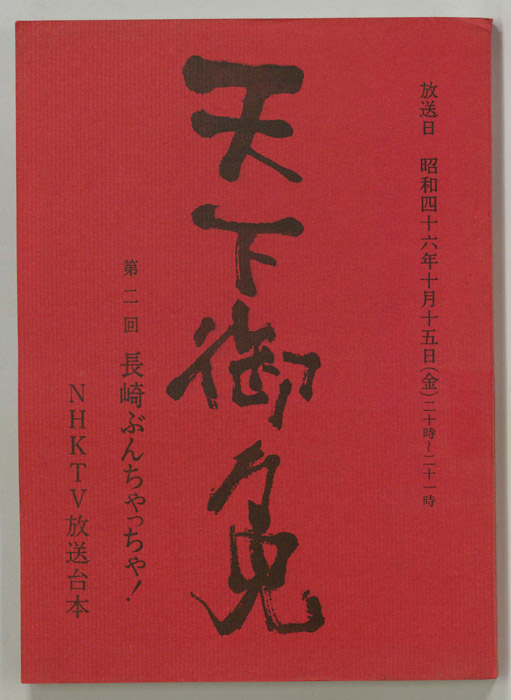 放送日　昭和四十六年十月十五日(金)二十時~二十一時
天下御免
第二回　長崎ぶんちゃっちゃ!
NHKTV放送台本